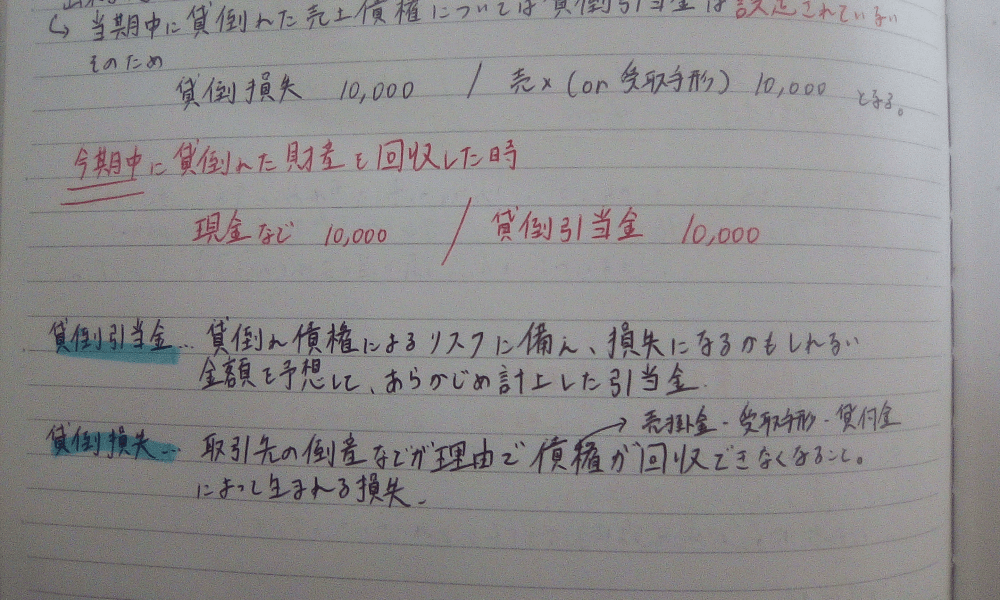 ↳ 当期中に貸倒れた売上債権については貸倒引当金は設定されていない
そのため
貸倒損失 10,000 / 売× (or 受取手形) 10,000 となる。
今期中に貸倒れた財産を回収した時
現金など 10,000 / 貸倒引当金 10,000
貸倒引当金… 貸倒れ債権によるリスクに備え、損失になるかもしれない
金額を予想して、あらかじめ計上した引当金.
→ 売掛金・受取手形・貸付金
貸倒損失… 取引先の倒産などが理由で債権が回収できなくなること。
によって生まれる損失.